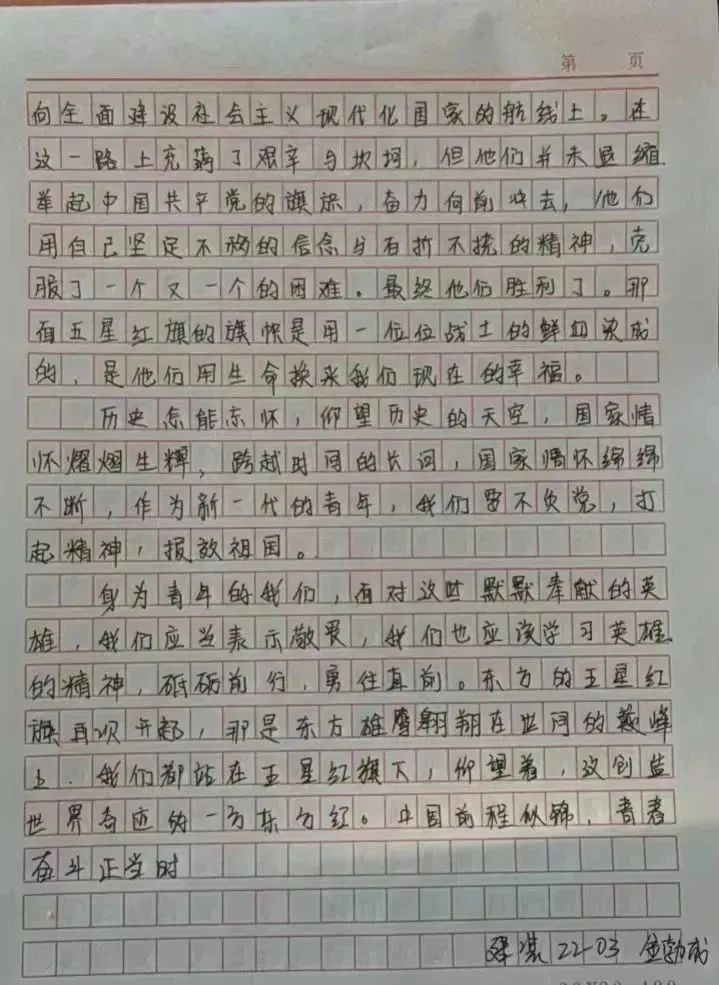 第 页
向全面建设社会主义现代化国家的航线上。在
这一路上充满了艰辛与坎坷，但他们并未退缩.
举起中国共产党的旗帜，奋力向前冲去，他们
用自己坚定不移的信念与百折不挠的精神，克
服了一个又一个的困难。最终他们胜利了。那
面五星红旗的旗帜是用一位位战士的鲜血染成
的，是他们用生命换来我们现在的幸福。
历史怎能忘怀，仰望历史的天空，国家情
怀熠熠生辉，跨越时间的长河，国家情怀绵绵
不断，作为新一代的青年，我们要不负党，打
起精神，报效祖国。
身为青年的我们，面对这些默默奉献的英
雄，我们应当表示敬畏，我们也应该学习英雄
的精神，砥砺前行，勇往直前。东方的五星红
旗再次升起，那是东方雄鹰翱翔在世间的巅峰
上.我们都站在五星红旗下，仰望着，这创造
世界奇迹的一方东方红。中国前程似锦，青春
奋斗正当时
22-03